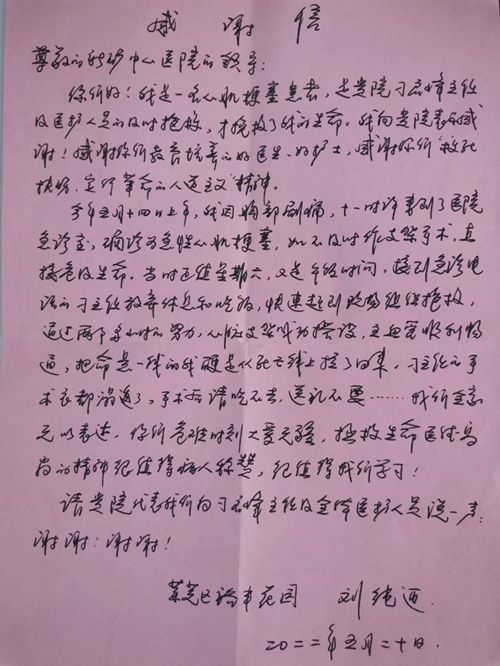 感谢信
尊敬的新矿中心医院的领导：
你们好！我是一名心肌梗塞患者，是贵院刁主任
及医护人员的及时抢救，才挽救了我的生命。我向贵院表示感
谢！感谢你们教育培养的好医生、好护士，感谢你们救死
扶伤、实行革命的人道主义精神。
今年五月十四日上午，我因胸部剧痛，十一时许来到了医院
急诊室，确诊为急性心肌梗塞，如不及时作支架手术，直
接危及生命。当时正值星期六，又是午饭时间，接到急诊电
话的刁主任放弃休息和吃饭，快速赶到现场组织抢救，
通过两个多小时的努力，心脏支架成功搭设，主血管顺利畅
通，把命悬一线的我硬是从死亡线上拉了回来，刁主任的手
术衣都湿透了，手术后请吃不去，送礼不要……我们全家
无以表达，你们危难时刻大爱无疆，拯救生命医德高
尚的精神很值得病人称赞，很值得我们学习！
请贵院代表我们向刁主任及全体医护人员说一声：
谢谢！谢谢！
莱芜区花园 刘
二0二二年五月二十日